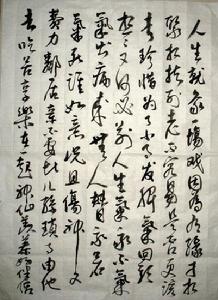 人生就象一場戲因為有緣才相
聚相扶到老不容易是否更該
去珍惜為了小事發脾氣回頭
想想又何必別人生氣我不氣
氣出病來無人替我若
氣死誰如意況且傷神又
費力鄰居親朋不要比儿孫瑣事由他
去吃苦享樂在一起神仙羨慕好伴侶